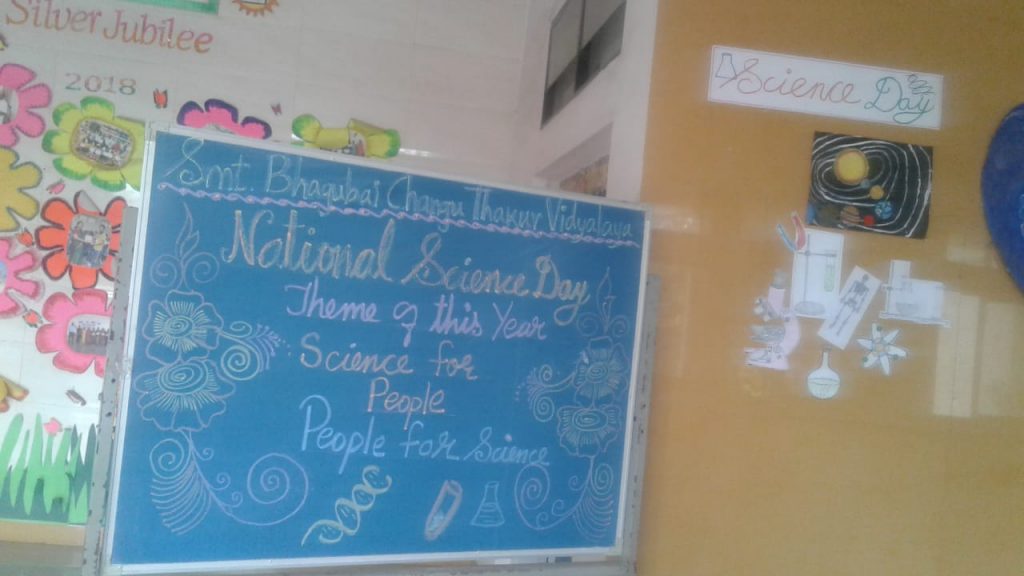 Silver Jubilee
2018
Smt. Bhagubai Changu Thakur Vidyalaya
National Science Day
Theme of this Year
Science for
People
People for Science
Science Day